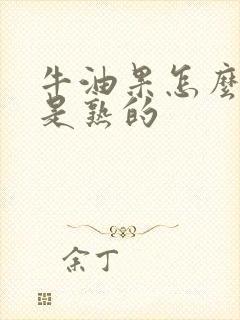 牛油果怎麼
是熟的
余丁